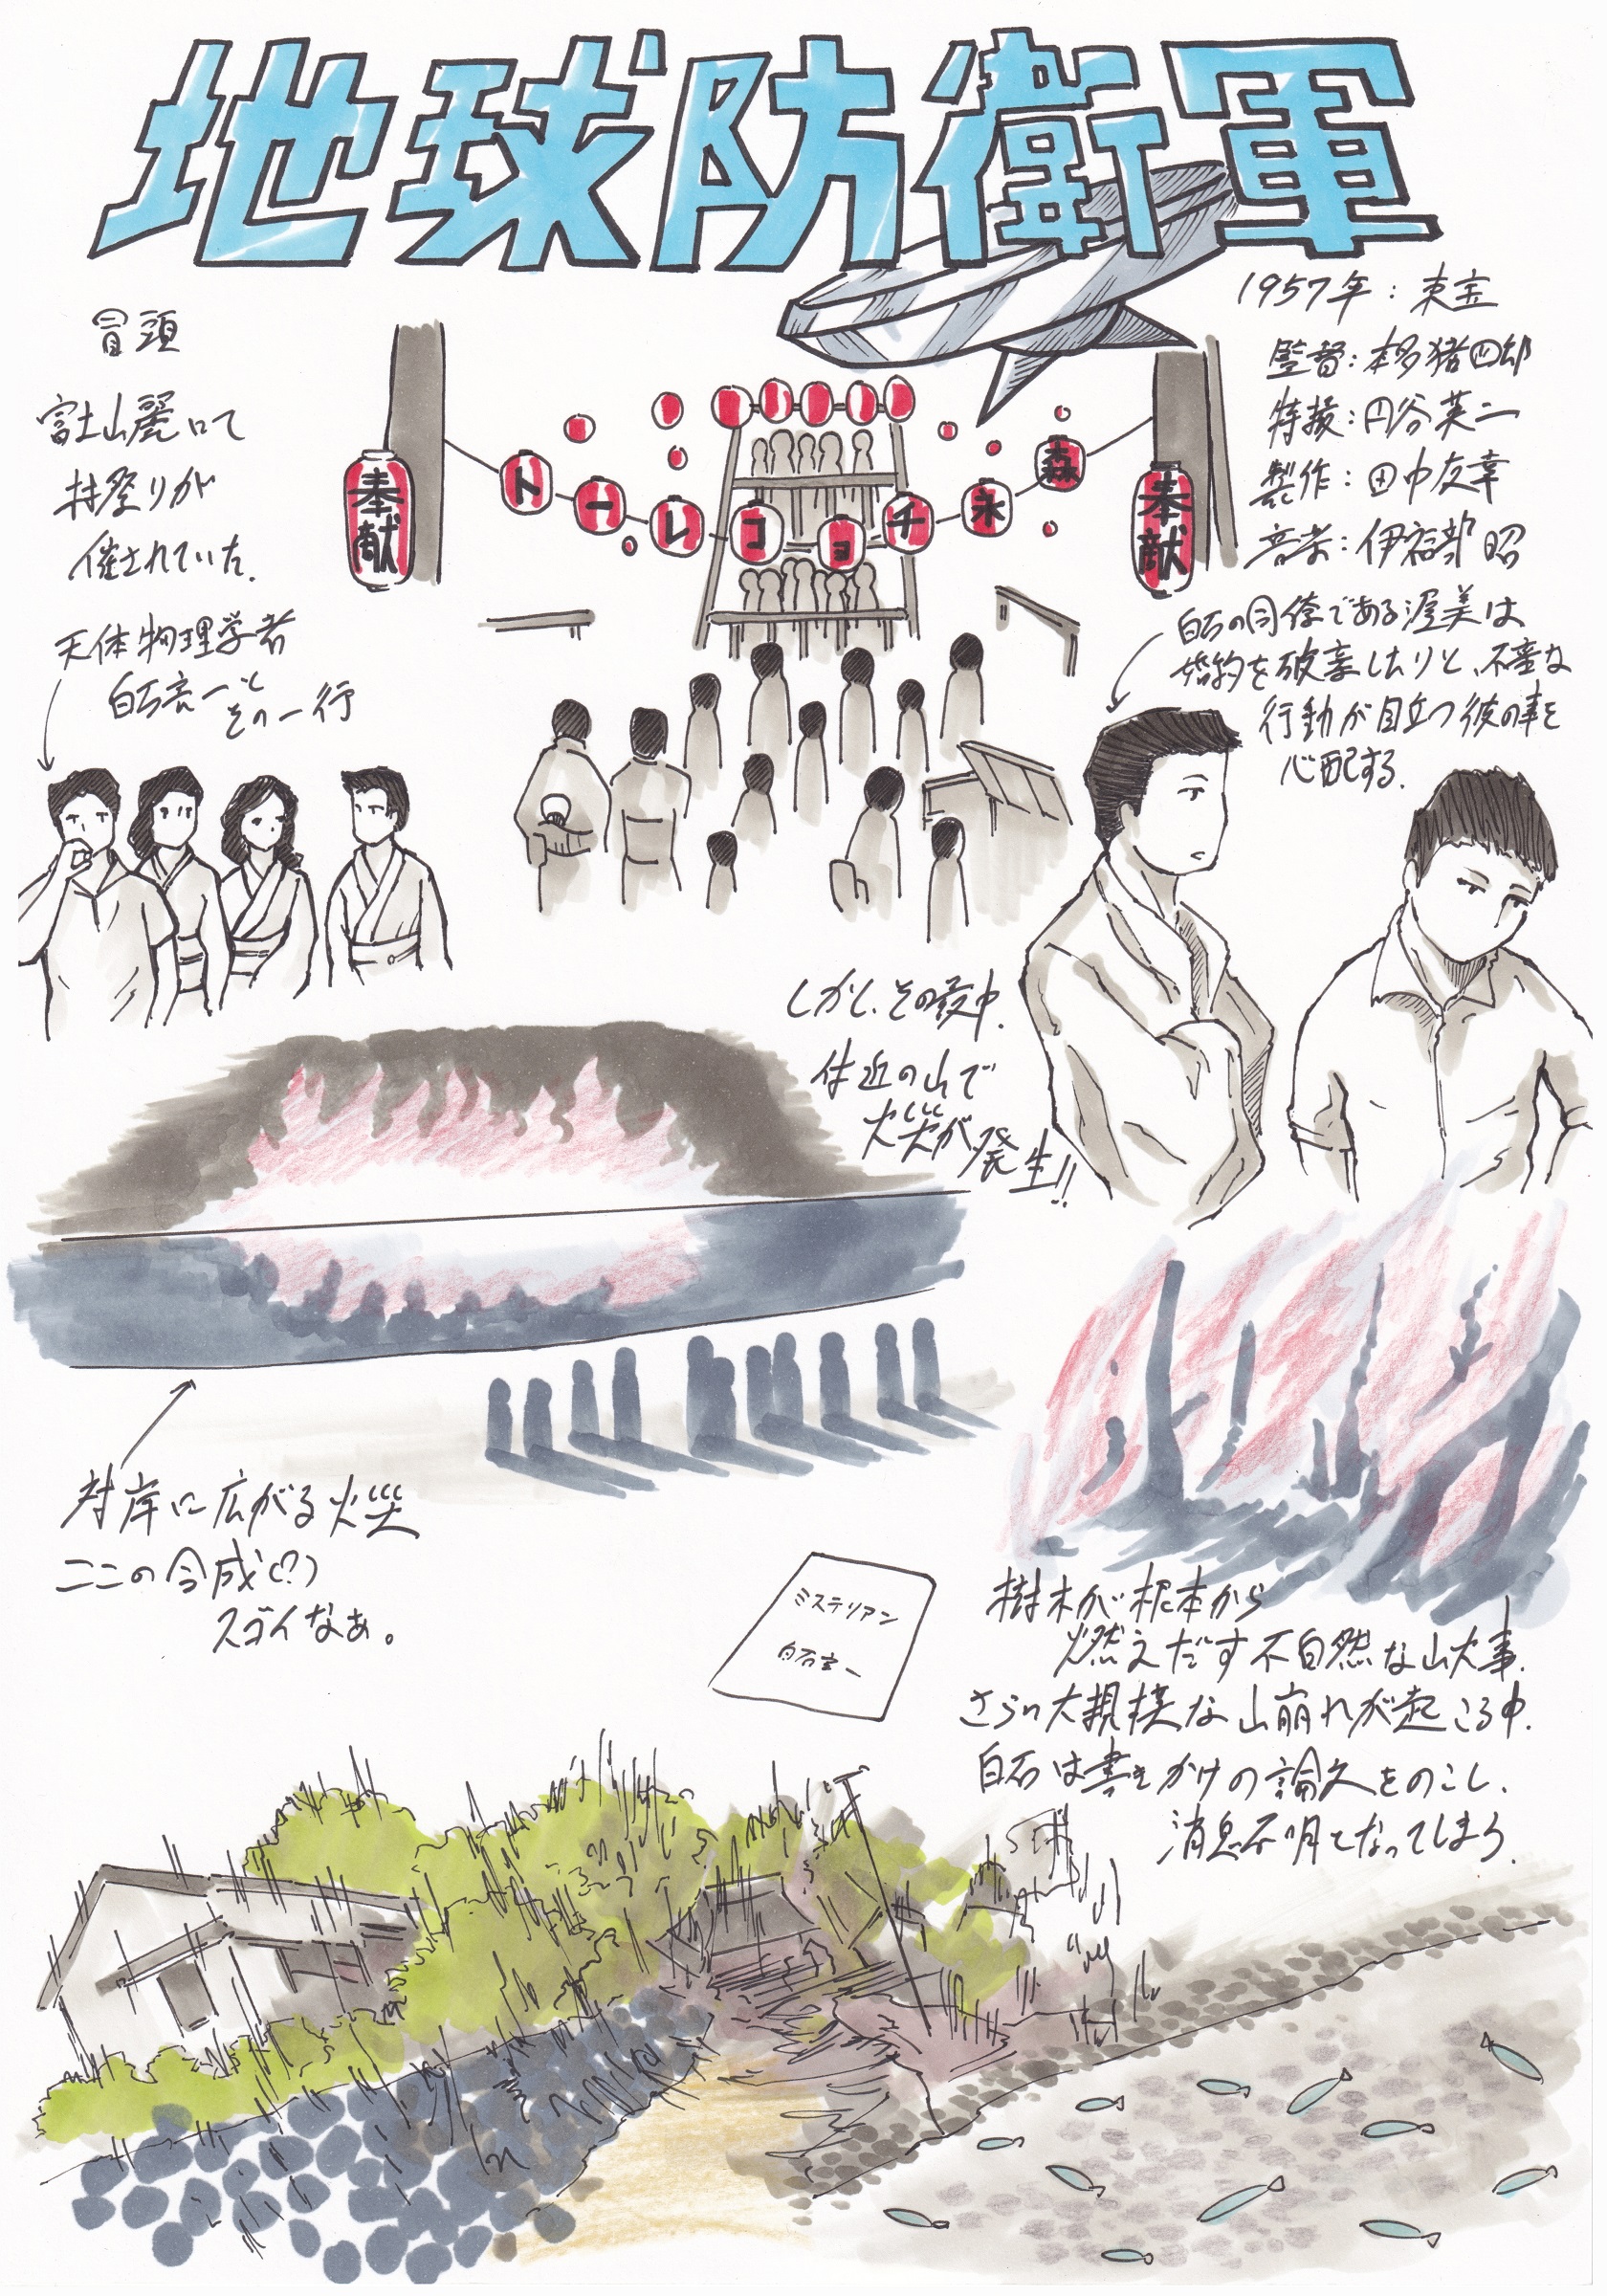 地球防衛軍
1957年：東宝
監督：本多猪四郎
特撮：円谷英二
製作：田中友幸
音楽：伊福部昭
冒頭
富士山麓にて
村祭りが
催されていた。
奉献
トーレコョチ永森
奉献
天体物理学者
白石亮一と
その一行
白石の同僚である渥美は
婚約を破棄したりと、不審な
行動が目立つ彼の事を
心配する。
しかし、その最中、
付近の山で
火災が発生!!
対岸に広がる火災
ここの合成(?)
スゴイなぁ。
ミステリアン
白石亮一
樹木が根本から
燃えだす不自然な山火事。
さらに大規模な山崩れが起こる中、
白石は書きかけの論文をのこし、
消息不明となってしまう。